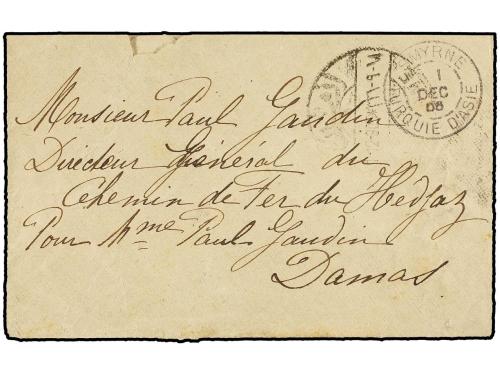 SMYRNE
1
DEC
TURQUIE D'ASIE
Monsieur Paul Gaudin
Directeur Général du
Chemin de Fer du Hédjaz
Pour Mme Paul Gaudin
Damas